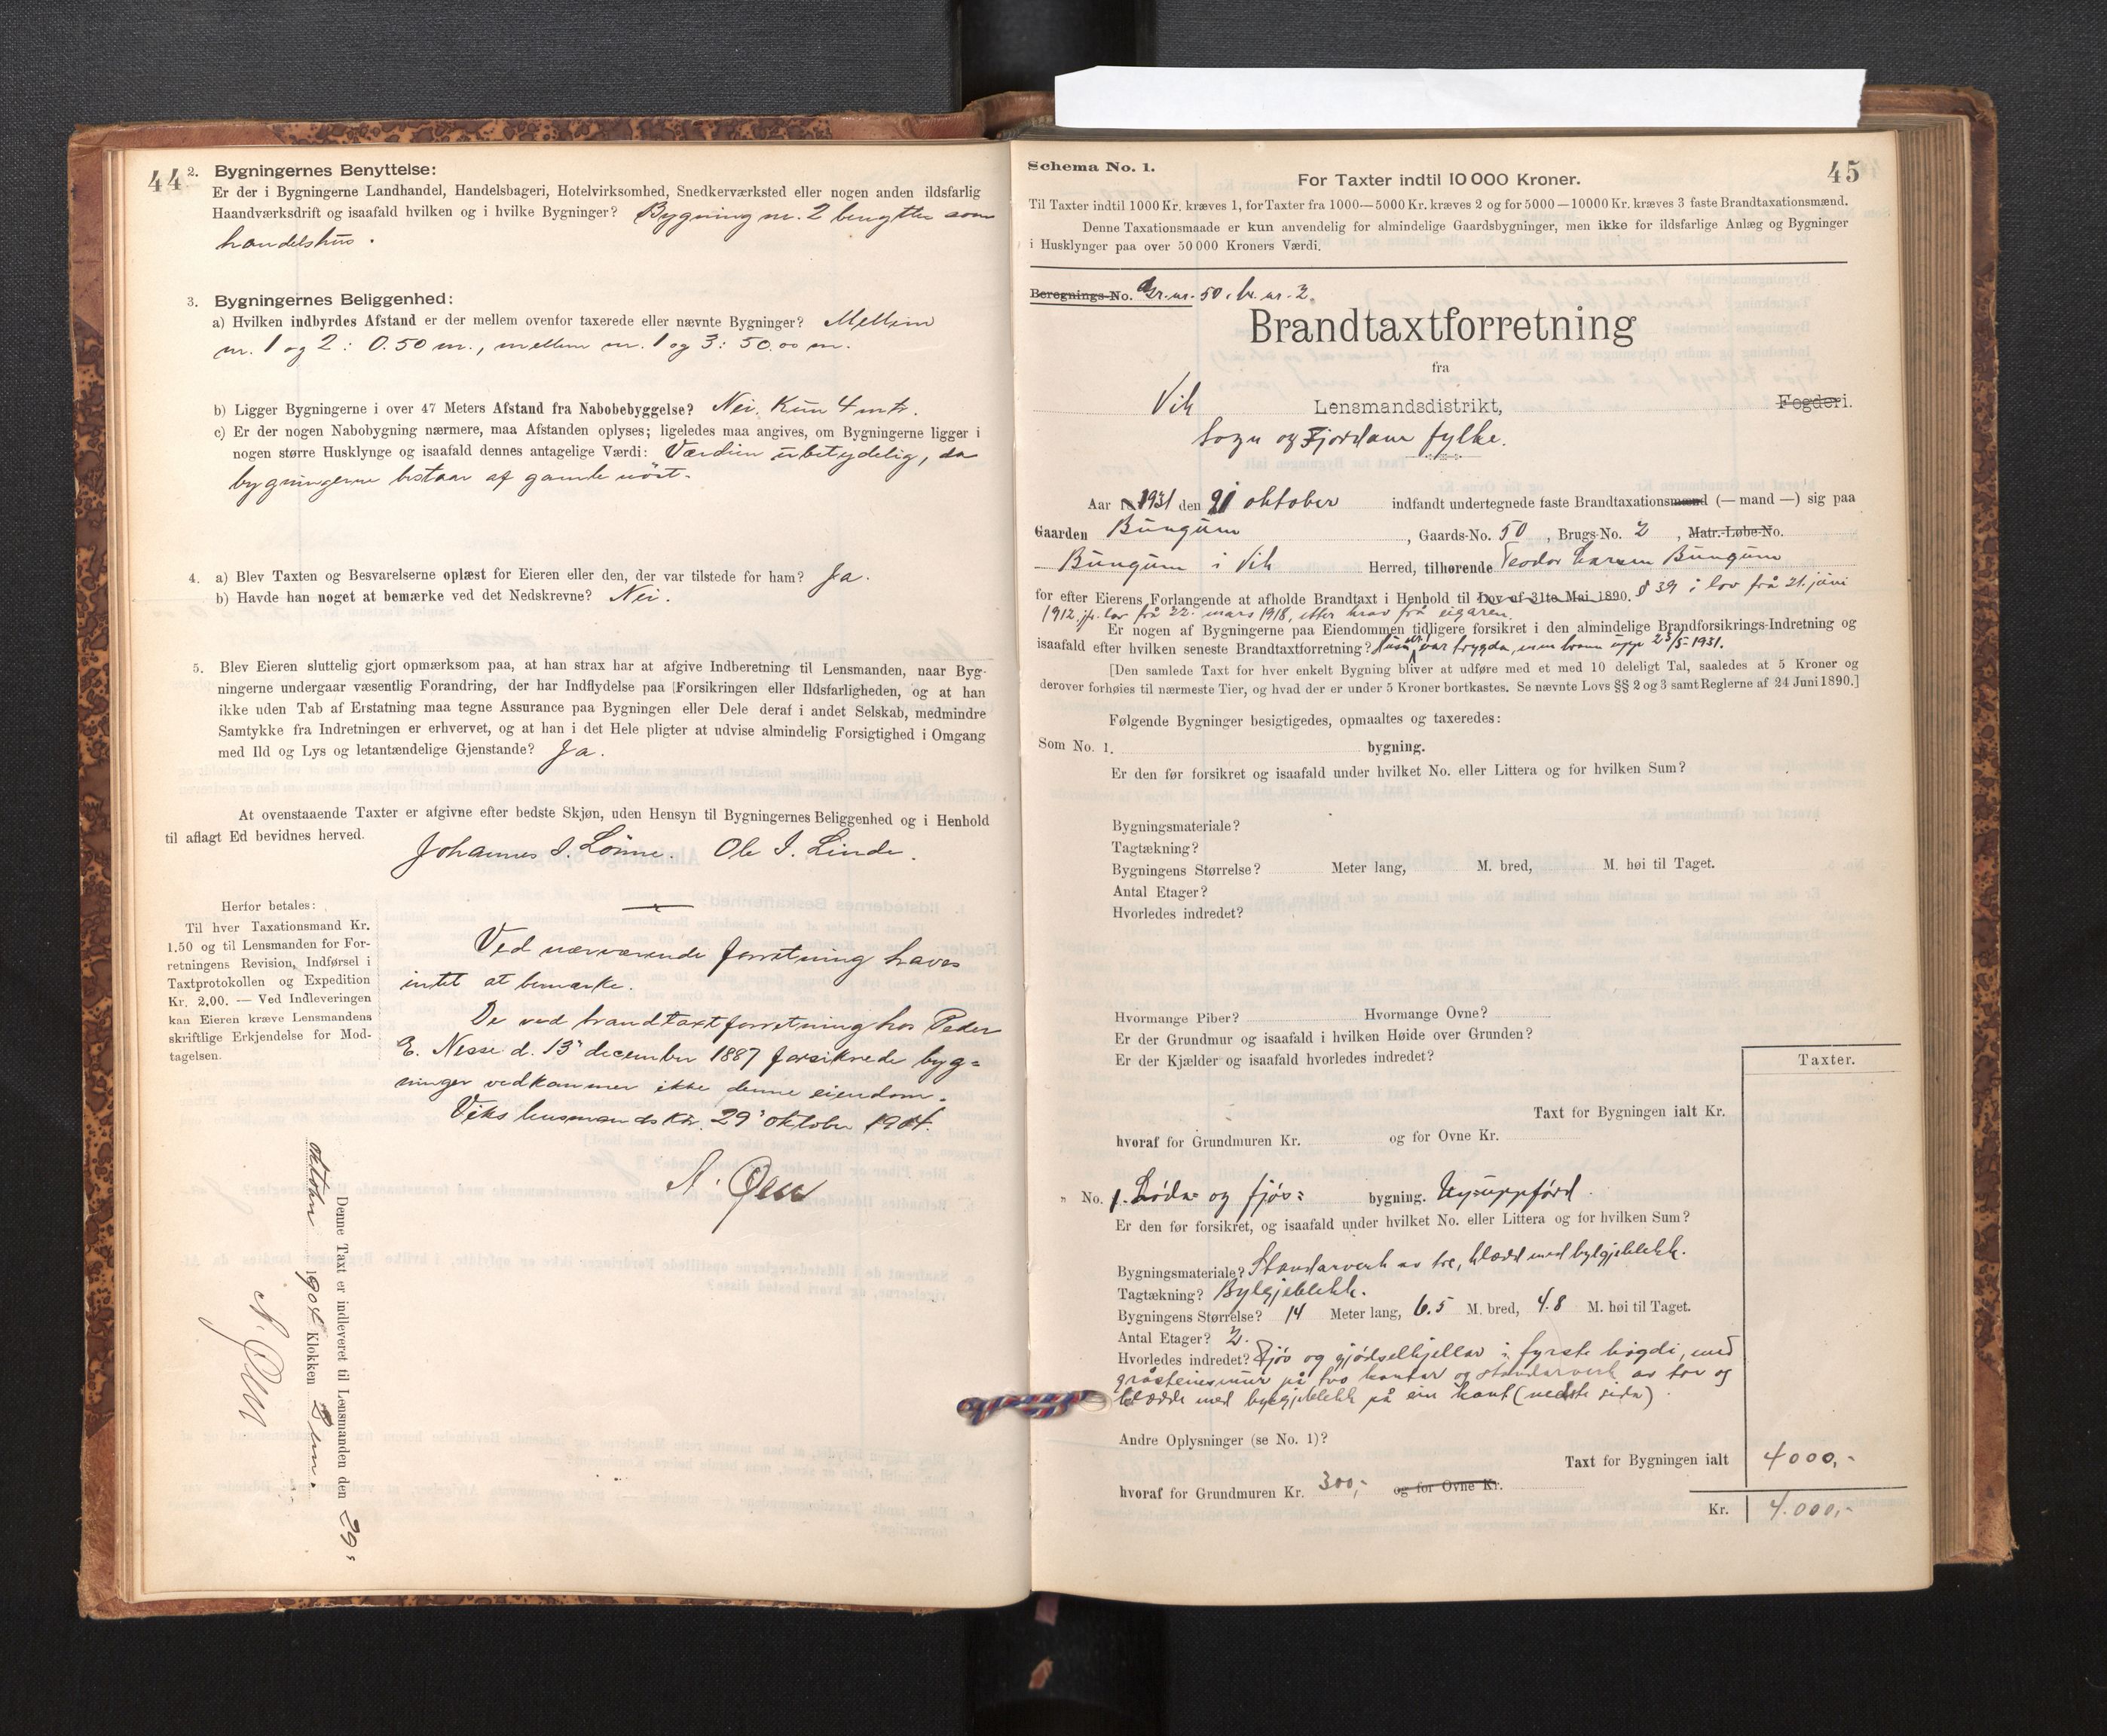 44
2. Bygningernes Benyttelse:
Er der i Bygningerne Landhandel, Handelsbageri, Hotelvirksomhed, Snedkerværksted eller nogen anden ildsfarlig
Haandværksdrift og isaafald hvilken og i hvilke Bygninger? Bygning nr. 2 benyttes som
handelshus.
3. Bygningernes Beliggenhed:
a) Hvilken indbyrdes Afstand er der mellem ovenfor taxerede eller nævnte Bygninger? Mellem
nr. 1 og 2: 0.50 m., mellem nr. 1 og 3: 50.00 m.
b) Ligger Bygningerne i over 47 Meters Afstand fra Nabobebyggelse? Nei. Kun 4 mtr.
c) Er der nogen Nabobygning nærmere, maa Afstanden oplyses; ligeledes maa angives, om Bygningerne ligger i
nogen større Husklynge og isaafald dennes antagelige Værdi: Værdien übetydelig, da
bygningerne bestaar af gamle nöst.
4. a) Blev Taxten og Besvarelserne oplæst for Eieren eller den, der var tilstede for ham? Ja.
b) Havde han noget at bemærke ved det Nedskrevne? Nei.
5. Blev Eieren sluttelig gjort opmærksom paa, at han strax har at afgive Indberetning til Lensmanden, naar Byg-
ningerne undergaar væsentlig Forandring, der har Indflydelse paa Forsikringen eller Ildsfarligheden, og at han
ikke uden Tab af Erstatning maa tegne Assurance paa Bygningen eller Dele deraf i andet Selskab, medmindre
Samtykke fra Indretningen er erhvervet, og at han i det Hele pligter at udvise almindelig Forsigtighed i Omgang
med Ild og Lys og letantændelige Gjenstande? Ja.
At ovenstaaende Taxter er afgivne efter bedste Skjøn, uden Hensyn til Bygningernes Beliggenhed og i Henhold
til aflagt Ed bevidnes herved.
Johannes I. Lönne. Ole I. Linde.
Herfor betales:
Til hver Taxationsmand Kr.
1.50 og til Lensmanden for For-
retningens Revision, Indførsel i
Taxtprotokollen og Expedition
Kr. 2.00. — Ved Indleveringen
kan Eieren kræve Lensmandens
skriftlige Erkjendelse for Mod-
tagelsen.
Ved nærværende forretning haves
intet at bemærke.
De ved brandtaxtforretning hos Peder
E. Nesse d. 13' december 1887 forsikrede byg=
ninger vedkommer ikke denne eiendom.
Viks lensmandsktr. 29' oktober 1904.
Denne Taxt er indleveret til Lensmanden den 29'
oktober 1904 Klokken
45
Schema No. 1.
For Taxter indtil 10 000 Kroner.
Til Taxter indtil 1000 Kr. kræves 1, for Taxter fra 1000—5000 Kr. kræves 2 og for 5000—10000 Kr. kræves 3 faste Brandtaxationsmænd.
Denne Taxationsmaade er kun anvendelig for almindelige Gaardsbygninger, men ikke for ildsfarlige Anlæg og Bygninger
i Husklynger paa over 50 000 Kroners Værdi.
Beregnings-No. Gr. nr. 50. br. nr. 2.
Brandtaxtforretning
fra
Vik Lensmandsdistrikt, Fogderi.
Sogn og Fjordane fylke.
Aar 1931 den 21 oktober indfandt undertegnede faste Brandtaxationsmænd (— mand —) sig paa
Gaarden Büngüm, Gaards-No. 50, Brugs-No. 2, Matr.-Løbe-No.
Büngüm i Vik Herred, tilhørende Teodor Larsen Büngüm
for efter Eierens Forlangende at afholde Brandtaxt i Henhold til Lov af 31te Mai 1890. § 39 i lov frå 21. juni
1912. jfr. lov frå 22. mars 1918, etter krav frå eigaren.
Er nogen af Bygningerne paa Eiendommen tidligere forsikret i den almindelige Brandforsikrings-Indretning og
isaafald efter hvilken seneste Brandtaxtforretning? var trygda, men brann upp 23/5-1931.
[Den samlede Taxt for hver enkelt Bygning bliver at udføre med et med 10 deleligt Tal, saaledes at 5 Kroner og
derover forhøies til nærmeste Tier, og hvad der er under 5 Kroner bortkastes. Se nævnte Lovs §§ 2 og 3 samt Reglerne af 24 Juni 1890.]
Følgende Bygninger besigtigedes, opmaaltes og taxeredes:
Som No. 1. bygning.
Er den før forsikret og isaafald under hvilket No. eller Littera og for hvilken Sum?
Bygningsmateriale?
Tagtækning?
Bygningens Størrelse? Meter lang, M. bred, M. høi til Taget.
Antal Etager?
Hvorledes indredet?
Hvormange Piber? Hvormange Ovne?
Er der Grundmur og isaafald i hvilken Høide over Grunden?
Er der Kjælder og isaafald hvorledes indredet?
Taxter.
Taxt for Bygningen ialt Kr.
hvoraf for Grundmuren Kr. og for Ovne Kr.
" No. 1. Löda= og fjös= bygning. Ny-uppförd.
Er den før forsikret, og isaafald under hvilket No. eller Littera og for hvilken Sum?
Bygningsmateriale? Standarverk av tre, klædd med bylgjeblekk.
Tagtækning? Bylgjeblekk.
Bygningens Størrelse? 14 Meter lang, 6.5 M. bred, 4.8 M. høi til Taget.
Antal Etager? 2.
Hvorledes indredet? Fjös og gjödselkjellar i fyrste högdi, med
gråsteinsmür på tvo kantar og standarverk av tre og
klædde med bylgjeblekk på ein kant (nedste sida).
Andre Oplysninger (se No. 1)?
Taxt for Bygningen ialt 4000,-
hvoraf for Grundmuren Kr. 300,- og for Ovne Kr.
Kr. 4.000,-